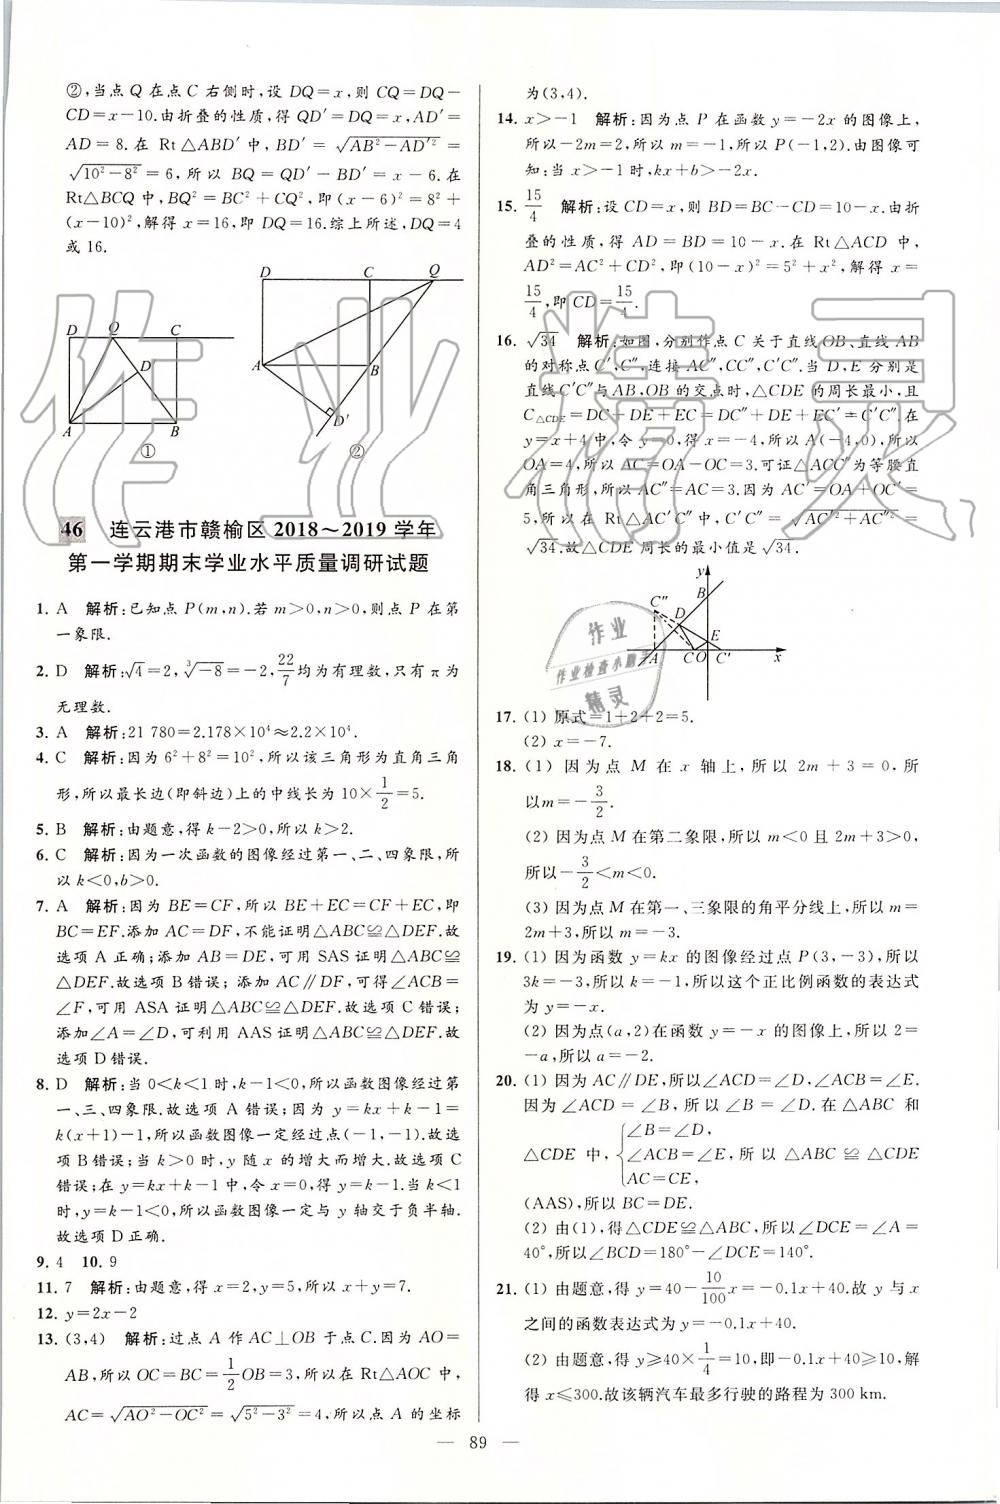 ②,当点 Q 在点 C 右侧时,设 DQ=x,则 CQ=DQ-
CD=x-10.由折叠的性质,得 QD′=DQ=x,AD′=
AD=8.在 Rt△ABD′中,BD′=√(AB²-AD′²)=
√(10²-8²)=6,所以 BQ=QD′-BD′=x-6.在
Rt△BCQ 中,BQ²=BC²+CQ²,即(x-6)²=8²+
(x-10)²,解得 x=16,即 DQ=16.综上所述,DQ=4
或 16.
D C Q
D Q C
A B
D
D′
A B
① ②
46 连云港市赣榆区 2018~2019 学年
第一学期期末学业水平质量调研试题
1. A 解析:已知点 P(m,n).若 m>0,n>0,则点 P 在第
一象限.
2. D 解析:√4=2,³√-8=-2,22/7均为有理数,只有 π为
无理数.
3. A 解析:21 780=2.178×10⁴≈2.2×10⁴.
4. C 解析:因为 6²+8²=10²,所以该三角形为直角三角
形,所以最长边(即斜边)上的中线长为 10×1/2=5.
5. B 解析:由题意,得 k-2>0,所以 k>2.
6. C 解析:因为一次函数的图像经过第一、二、四象限,所
以 k<0,b>0.
7. A 解析:因为 BE=CF,所以 BE+EC=CF+EC,即
BC=EF.添加 AC=DF,不能证明△ABC≌△DEF.故
选项 A 正确;添加 AB=DE,可用 SAS 证明△ABC≌
△DEF.故选项 B 错误;添加 AC∥DF,可得∠ACB=
∠F,可用 ASA 证明△ABC≌△DEF.故选项 C 错误;
添加∠A=∠D,可利用 AAS 证明△ABC≌△DEF.故
选项 D 错误.
8. D 解析:当 0<k<1 时,k-1<0,所以函数图像经过第
一、三、四象限.故选项 A 错误;因为 y=kx+k-1=
k(x+1)-1,所以函数图像一定经过点(-1,-1).故选
项 B 错误;当 k>0 时,y 随 x 的增大而增大.故选项 C
错误;在 y=kx+k-1 中,令 x=0,得 y=k-1.当 k<1
时,y=k-1<0,所以函数图像一定与 y 轴交于负半轴.
故选项 D 正确.
9. 4 10. 9
11. 7 解析:由题意,得 x=2,y=5,所以 x+y=7.
12. y=2x-2
13. (3,4) 解析:过点 A 作 AC⊥OB 于点 C.因为 AO=
AB,所以 OC=BC=1/2OB=3,所以在 Rt△AOC 中,
AC=√(AO²-OC²)=√(5²-3²)=4,所以点 A 的坐标
为(3,4).
14. x>-1 解析:因为点 P 在函数 y=-2x 的图像上,
所以-2m=2,所以 m=-1,所以 P(-1,2).由图像可
知:当 x>-1 时,kx+b>-2x.
15. 15/4 解析:设 CD=x,则 BD=BC-CD=10-x.由折
叠的性质,得 AD=BD=10-x.在 Rt△ACD 中,
AD²=AC²+CD²,即(10-x)²=5²+x²,解得 x=
15/4,即 CD=15/4.
16. √34 解析:如图,分别作点 C 关于直线 OB、直线 AB
的对称点 C′、C″,连接 AC″,CC″,C′C″.当 D、E 分别是
直线 C′C″与 AB、OB 的交点时,△CDE 的周长最小,且
C△CDE=DC+DE+EC=DC″+DE+EC′=C′C″.在
y=x+4 中,令 y=0,得 x=-4,所以 A(-4,0),所以
OA=4,所以 AC=OA-OC=3.可证△ACC″为等腰直
角三角形,所以 AC″=AC=3.因为 AC′=OA+OC′=
5,所以在 Rt△AC′C″中,C′C″=√(AC′²+AC″²)=
√34.故△CDE 周长的最小值是√34.
y
B
C″ D
E
A C O C′ x
17. (1) 原式=1+2+2=5.
(2) x=-7.
18. (1) 因为点 M 在 x 轴上,所以 2m+3=0,所
以 m=-3/2.
(2) 因为点 M 在第二象限,所以 m<0 且 2m+3>0,
所以-3/2<m<0.
(3) 因为点 M 在第一、三象限的角平分线上,所以 m=
2m+3,所以 m=-3.
19. (1) 因为函数 y=kx 的图像经过点 P(3,-3),所以
3k=-3,所以 k=-1,所以这个正比例函数的表达式
为 y=-x.
(2) 因为点(a,2)在函数 y=-x 的图像上,所以 2=
-a,所以 a=-2.
20. (1) 因为 AC∥DE,所以∠ACD=∠D,∠ACB=∠E.
因为∠ACD=∠B,所以∠B=∠D.在△ABC 和
∠B=∠D,
△CDE 中,{∠ACB=∠E,所以△ABC≌△CDE
AC=CE,
(AAS),所以 BC=DE.
(2) 由(1),得△CDE≌△ABC,所以∠DCE=∠A=
40°,所以∠BCD=180°-∠DCE=140°.
21. (1) 由题意,得 y=40-10/100x=-0.1x+40.故 y 与 x
之间的函数表达式为 y=-0.1x+40.
(2) 由题意,得 y≥40×1/4=10,即-0.1x+40≥10,解
得 x≤300.故该辆汽车最多行驶的路程为 300 km.
— 89 —
作业精灵
作业
作业检查小助手
精灵